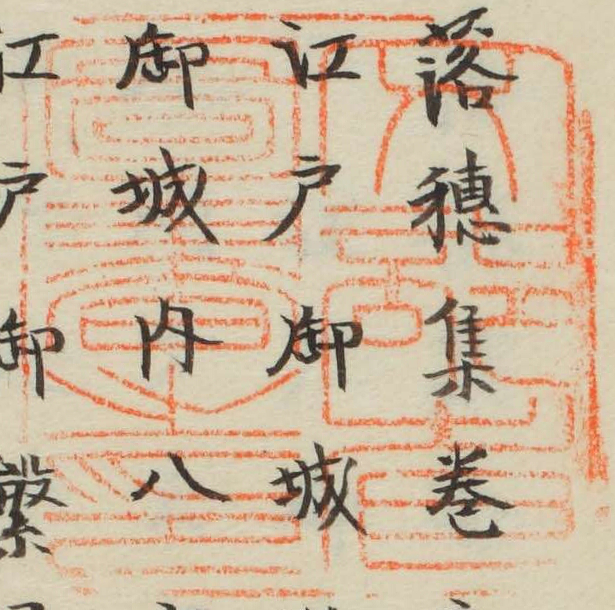 落穂集巻
江戸御城
御城内八
江戸御繁